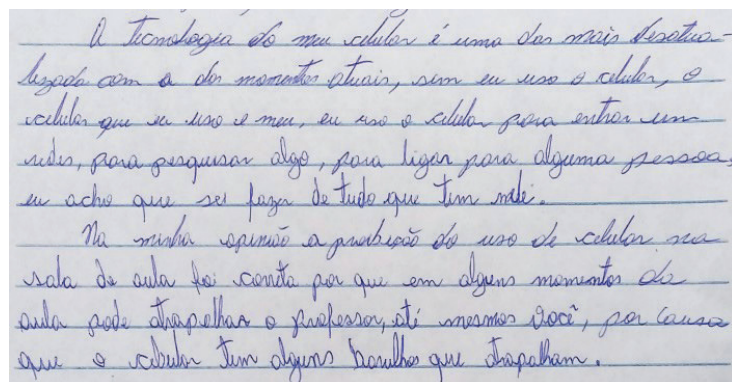 A Tecnologia do meu celular é uma das mais desatua-
lizada com a dos momentos atuais, sim eu uso o celular, o
celular que eu uso e meu, eu uso o celular para entrar em
redes, para pesquisar algo, para ligar para alguma pessoa,
eu acho que sei fazer de tudo que tem nele.
Na minha opinião a proibição do uso de celular na
sala de aula foi correta por que em alguns momentos da
aula pode atrapalhar o professor, até mesmos você, por causa
que o celular tem alguns barulhos que atrapalham.